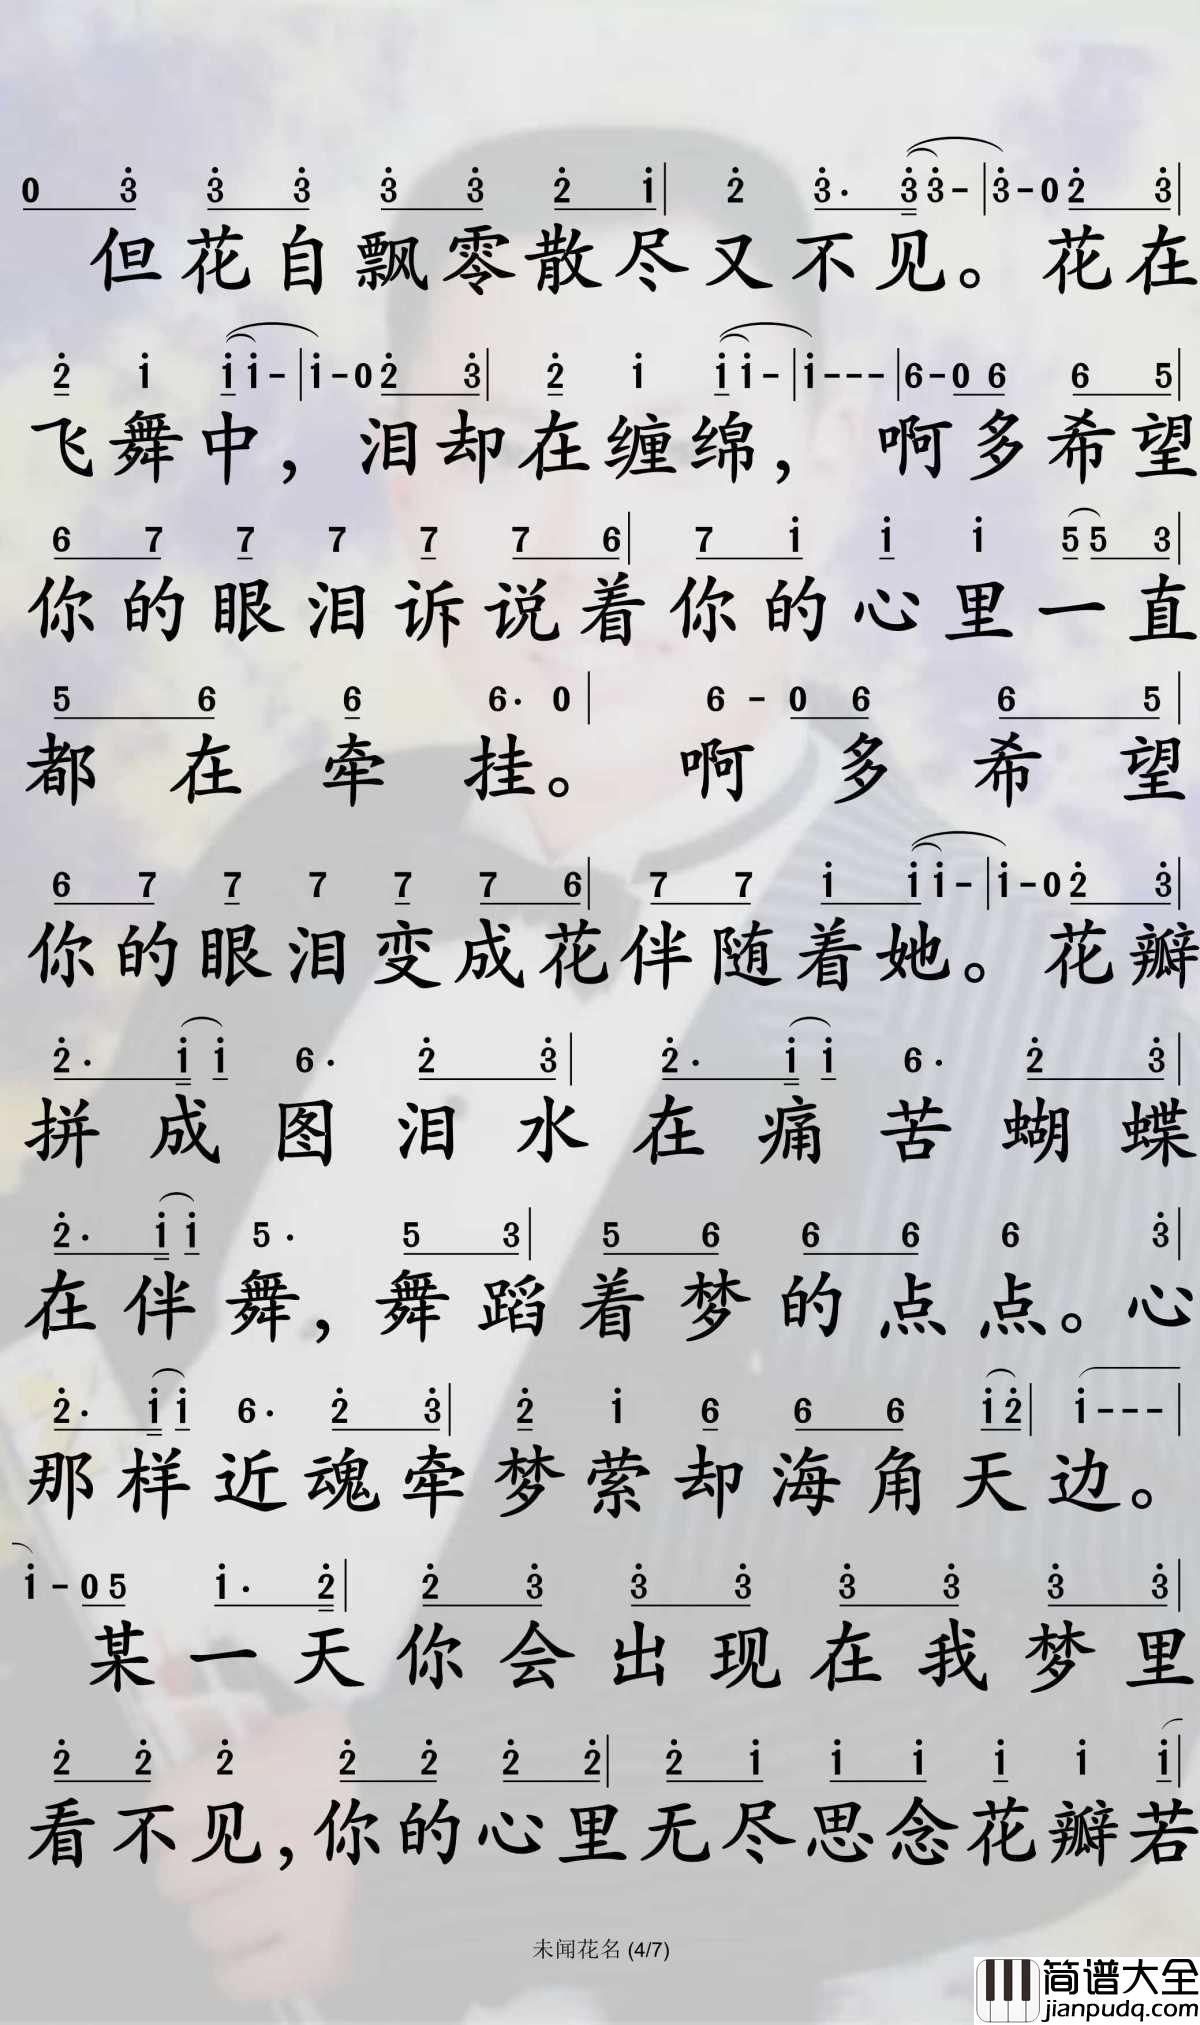 0 3̇ 3̇ 3̇ 3̇ 3̇ 2̇ 1̇ | 2̇ 3̇· 3̇ 3̇- | 3̇-0 2̇ 3̇ |
但花自飘零散尽又不见。花在
2̇ 1̇ 1̇ 1̇- | 1̇-0 2̇ 3̇ | 2̇ 1̇ 1̇ 1̇- | 1̇--- | 6-0 6 6 5 |
飞舞中，泪却在缠绵，啊多希望
6 7 7 7 7 7 6 | 7 1̇ 1̇ 1̇ 5 5 3 |
你的眼泪诉说着你的心里一直
5 6 6 6· 0 | 6 - 0 6 6 5 |
都在牵挂。啊多希望
6 7 7 7 7 7 6 | 7 7 1̇ 1̇ 1̇- | 1̇-0 2̇ 3̇ |
你的眼泪变成花伴随着她。花瓣
2̇· 1̇ 1̇ 6· 2̇ 3̇ | 2̇· 1̇ 1̇ 6· 2̇ 3̇ |
拼成图泪水在痛苦蝴蝶
2̇· 1̇ 1̇ 5· 5 3 | 5 6 6 6 6 3̇ |
在伴舞，舞蹈着梦的点点。心
2̇· 1̇ 1̇ 6· 2̇ 3̇ | 2̇ 1̇ 6 6 6 1̇ 2̇ | 1̇--- |
那样近魂牵梦萦却海角天边。
1̇-0 5 1̇· 2̇ | 2̇ 3̇ 3̇ 3̇ 3̇ 3̇ 3̇ 3̇ |
某一天你会出现在我梦里
2̇ 2̇ 2̇ 2̇ 2̇ 2̇ 2̇ | 2̇ 1̇ 1̇ 1̇ 1̇ 1̇ 1̇ |
看不见，你的心里无尽思念花瓣若
未闻花名 (4/7)
简谱大全
jianpudq.com